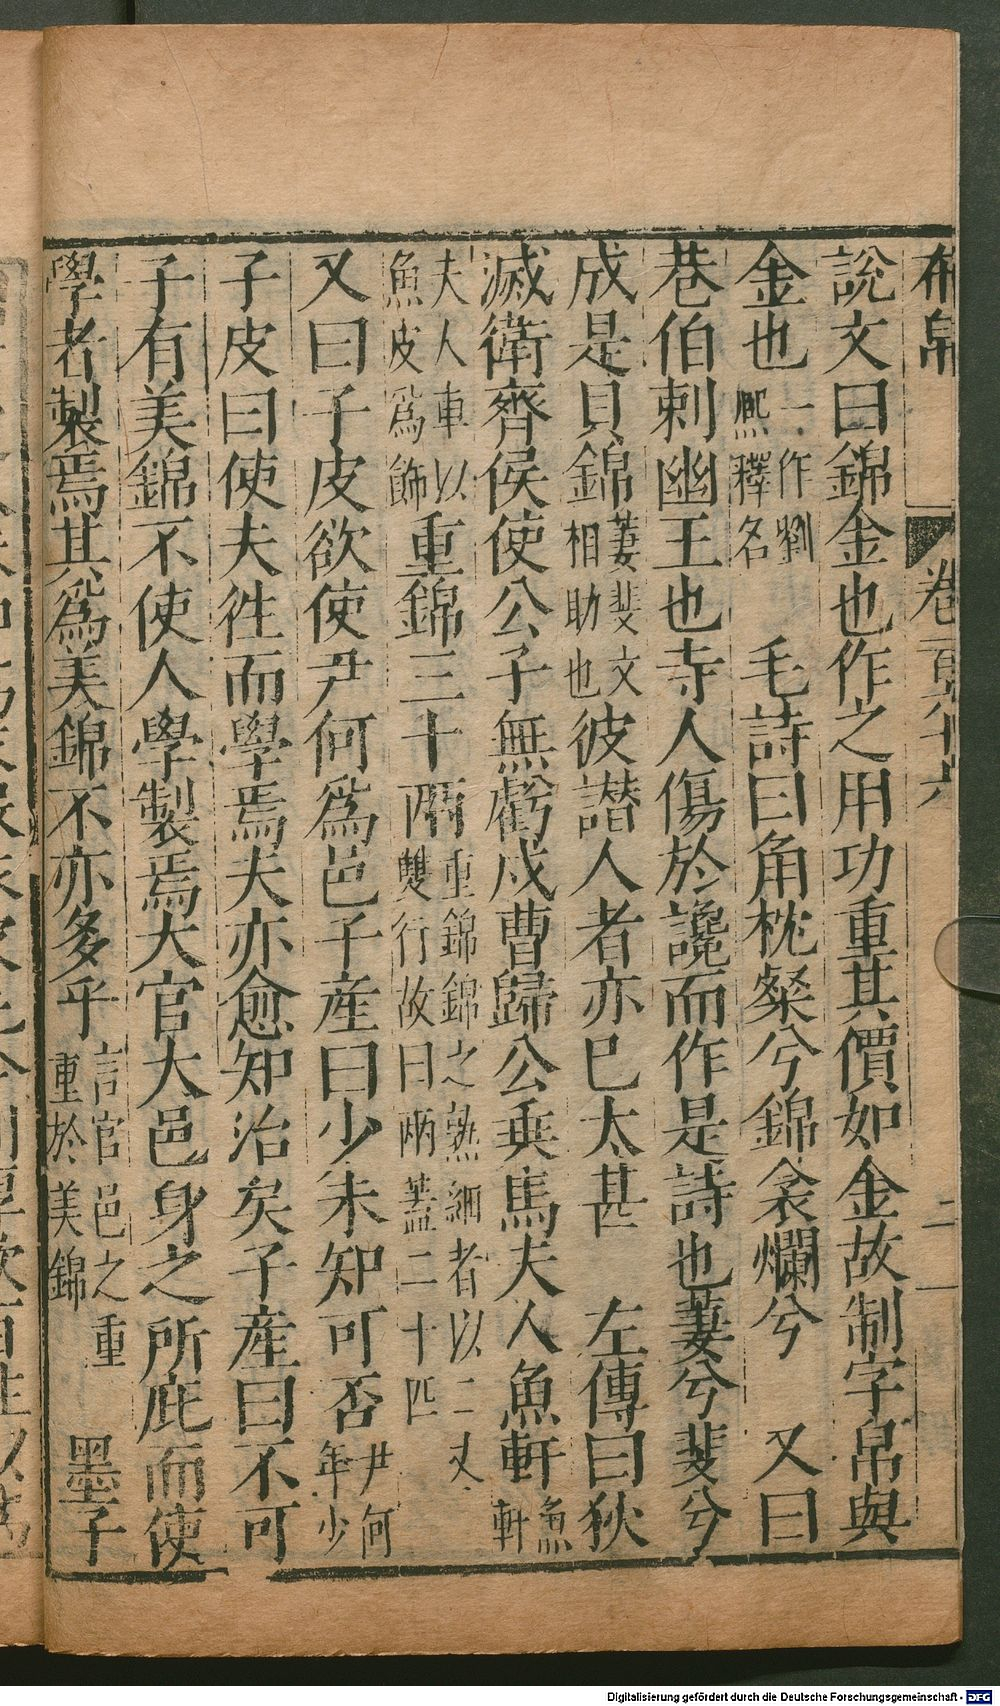 布帛 卷一百九十六 二
說文曰錦金也作之用功重其價如金故制字帛與
金也一作劉熙釋名 毛詩曰角枕粲兮錦衾爛兮 又曰
巷伯刺幽王也寺人傷於讒而作是詩也萋兮斐兮
成是貝錦萋斐文相助也彼譖人者亦已太甚 左傳曰狄
滅衛齊侯使公子無虧戍曹歸公乗馬夫人魚軒魚軒
夫人車以魚皮爲飾重錦三十兩重錦錦之熟細者以二丈雙行故曰兩蓋二十匹
又曰子皮欲使尹何爲邑子産曰少未知可否尹何年少
子皮曰使夫徃而學焉夫亦愈知治矣子産曰不可
子有美錦不使人學製焉大官大邑身之所庇而使
學者製焉其爲美錦不亦多乎言官邑之重重於美錦 墨子
Digitalisierung gefördert durch die Deutsche Forschungsgemeinschaft - DFG